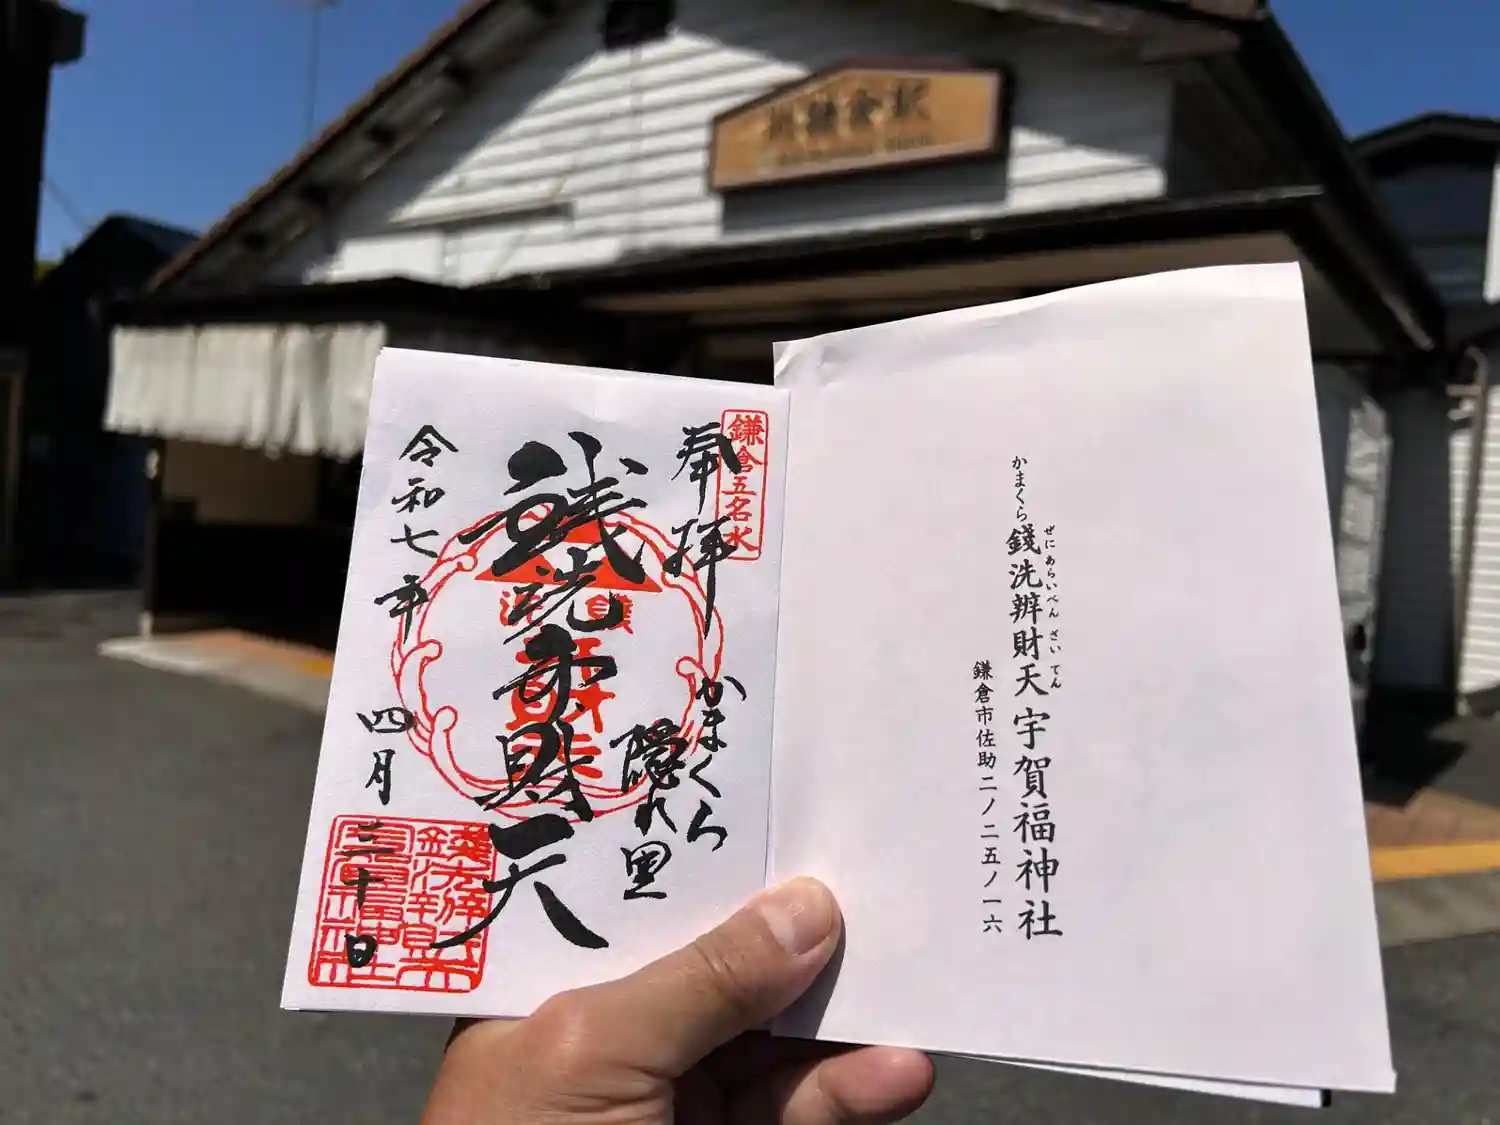 鎌倉五名水
奉拝
かまくら
隠れ里
銭洗弁財天
令和七年
四月三十日
かまくら
銭洗辨財天 宇賀福神社
ぜにあらいべんざいてん
鎌倉市佐助二ノ二五ノ一六